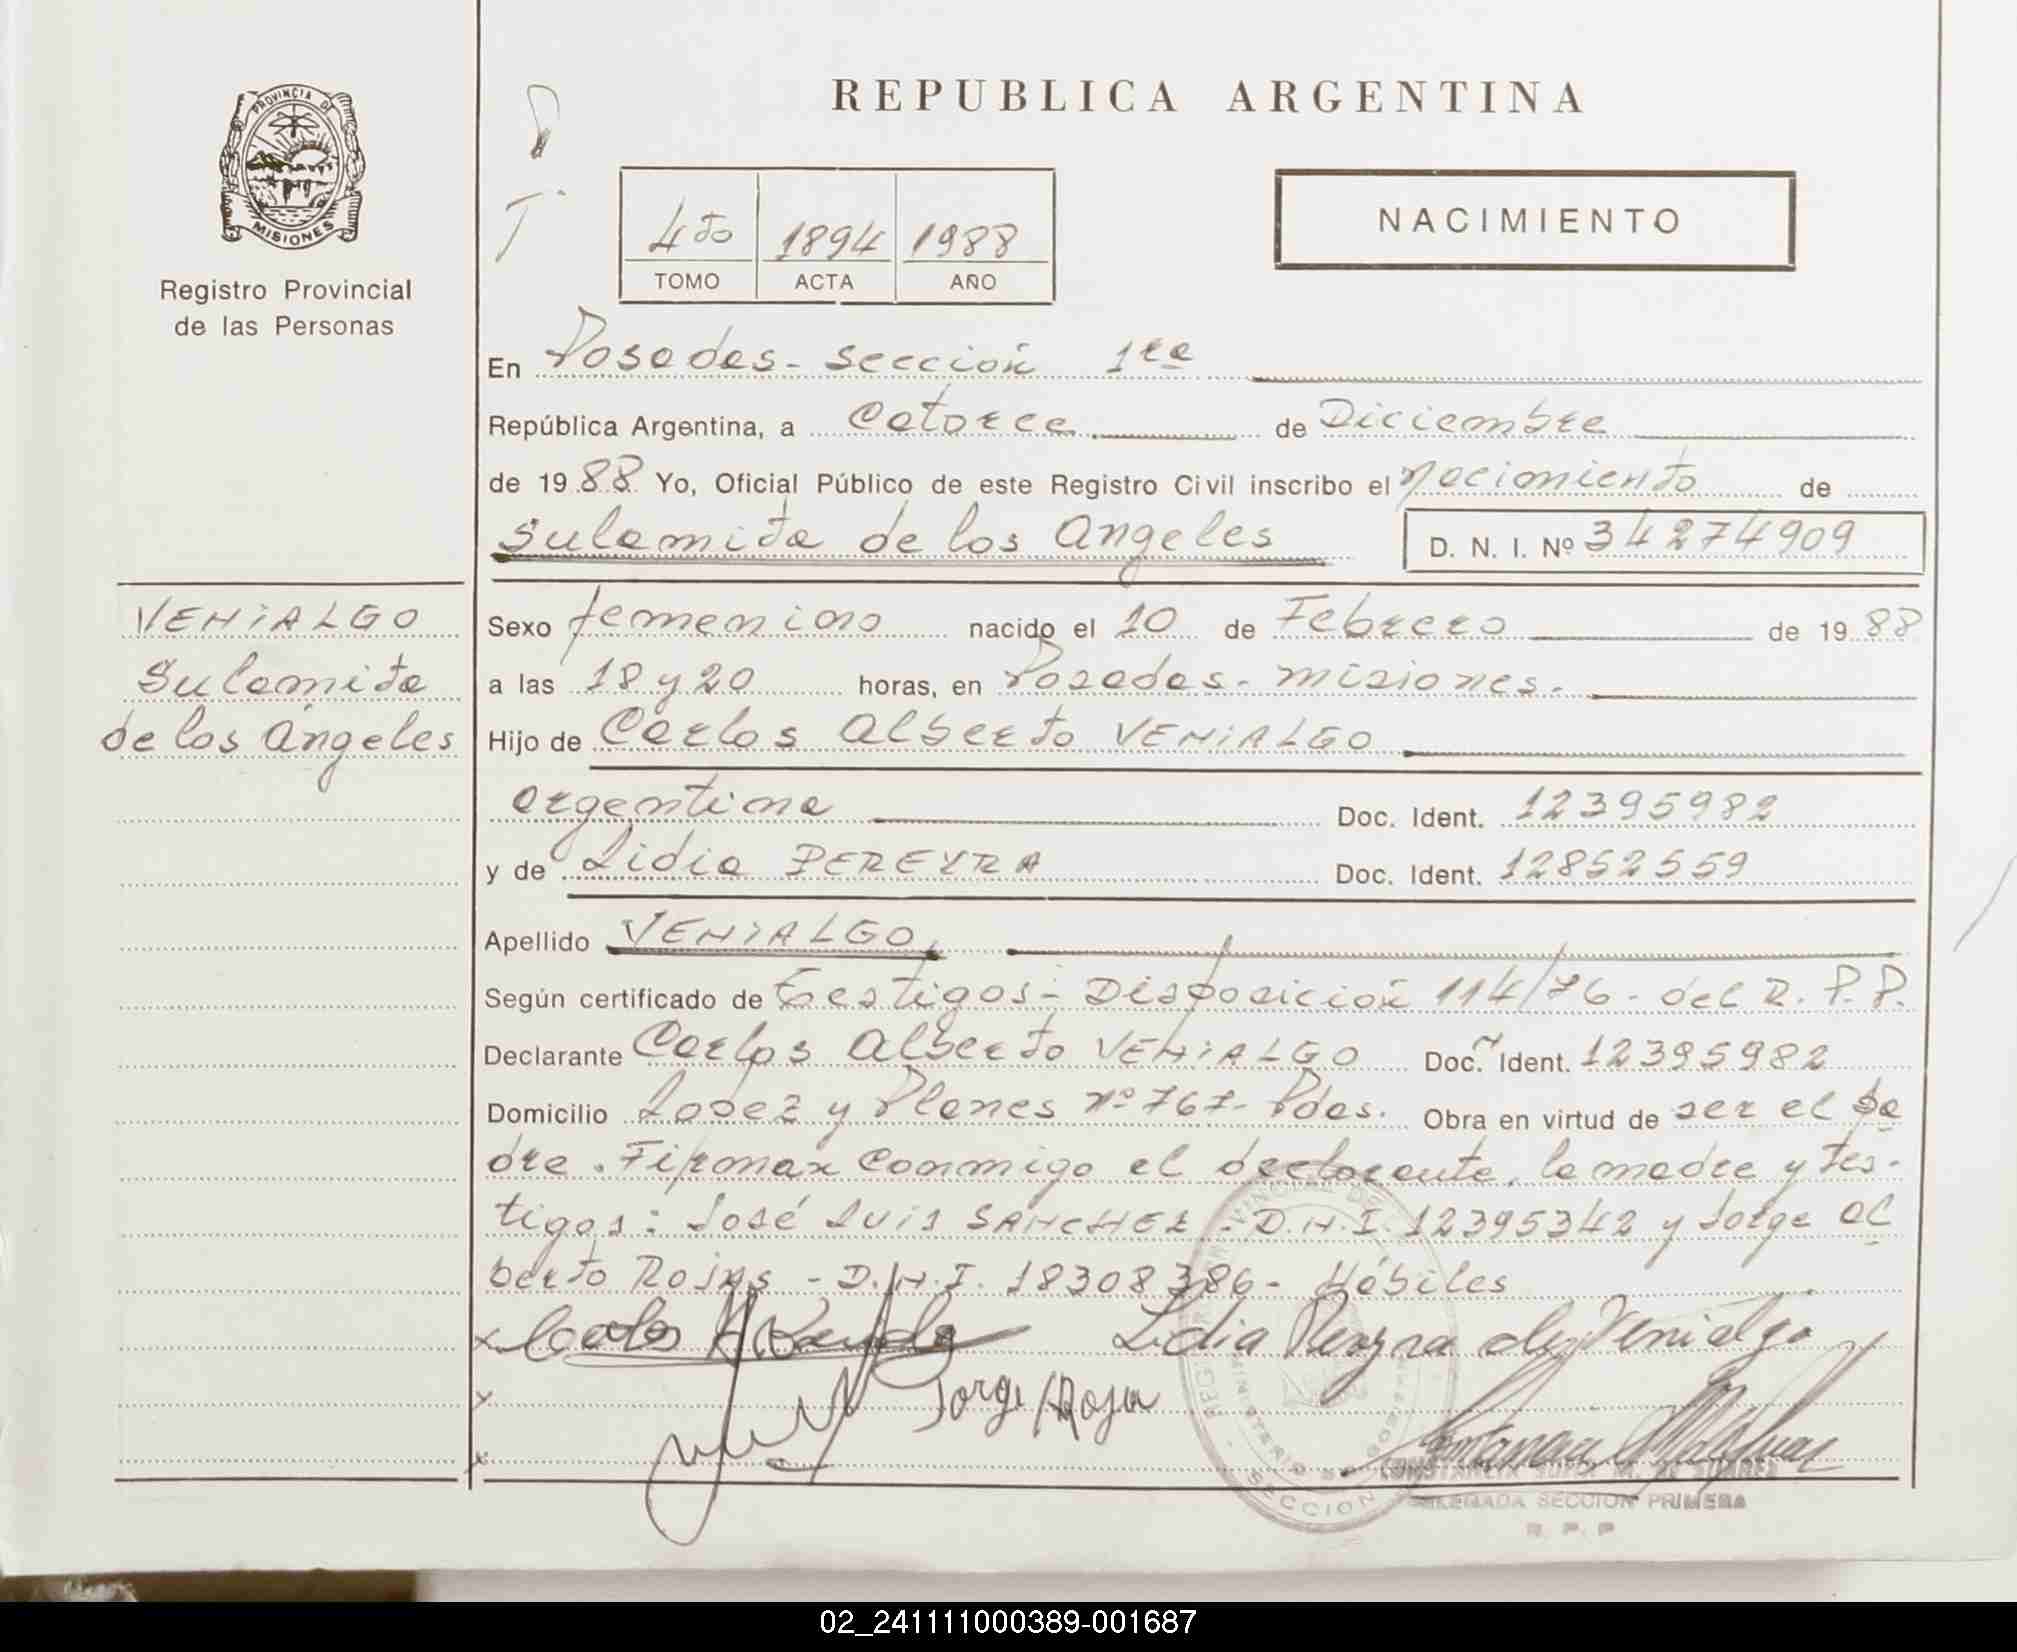 PROVINCIA DE
MISIONES
Registro Provincial
de las Personas
REPUBLICA ARGENTINA
4to 1894 1988
TOMO ACTA AÑO
NACIMIENTO
En Posadas - sección 1ra
República Argentina, a catorce de Diciembre
de 1988 Yo, Oficial Público de este Registro Civil inscribo el nacimiento de
Sulamita de los Angeles D. N. I. Nº 34274909
VENIALGO
Sulamita
de los Angeles
Sexo femenino nacido el 10 de Febrero de 1988
a las 18 y 20 horas, en Posadas - misiones.
Hijo de Carlos Alberto VENIALGO
argentina Doc. Ident. 12395982
y de Lidia PEREYRA Doc. Ident. 12852559
Apellido VENIALGO.
Según certificado de Testigos - Disposición 114/76 - del R. P. P.
Declarante Carlos Alberto VENIALGO Doc. Ident. 12395982
Domicilio Lopez y Planes nº 767 - Pdas. Obra en virtud de ser el pa
dre. Firman conmigo el declarante, la madre y tes-
tigos: José Luis SANCHEZ - D.N.I. 12395342 y Jorge Al
berto Rojas - D.N.I. 18308386 - Hábiles
Lidia Pereyra de Venialgo
Jorge Rojas
SECCION
DELEGADA SECCION PRIMERA
R. P. P
02_241111000389-001687